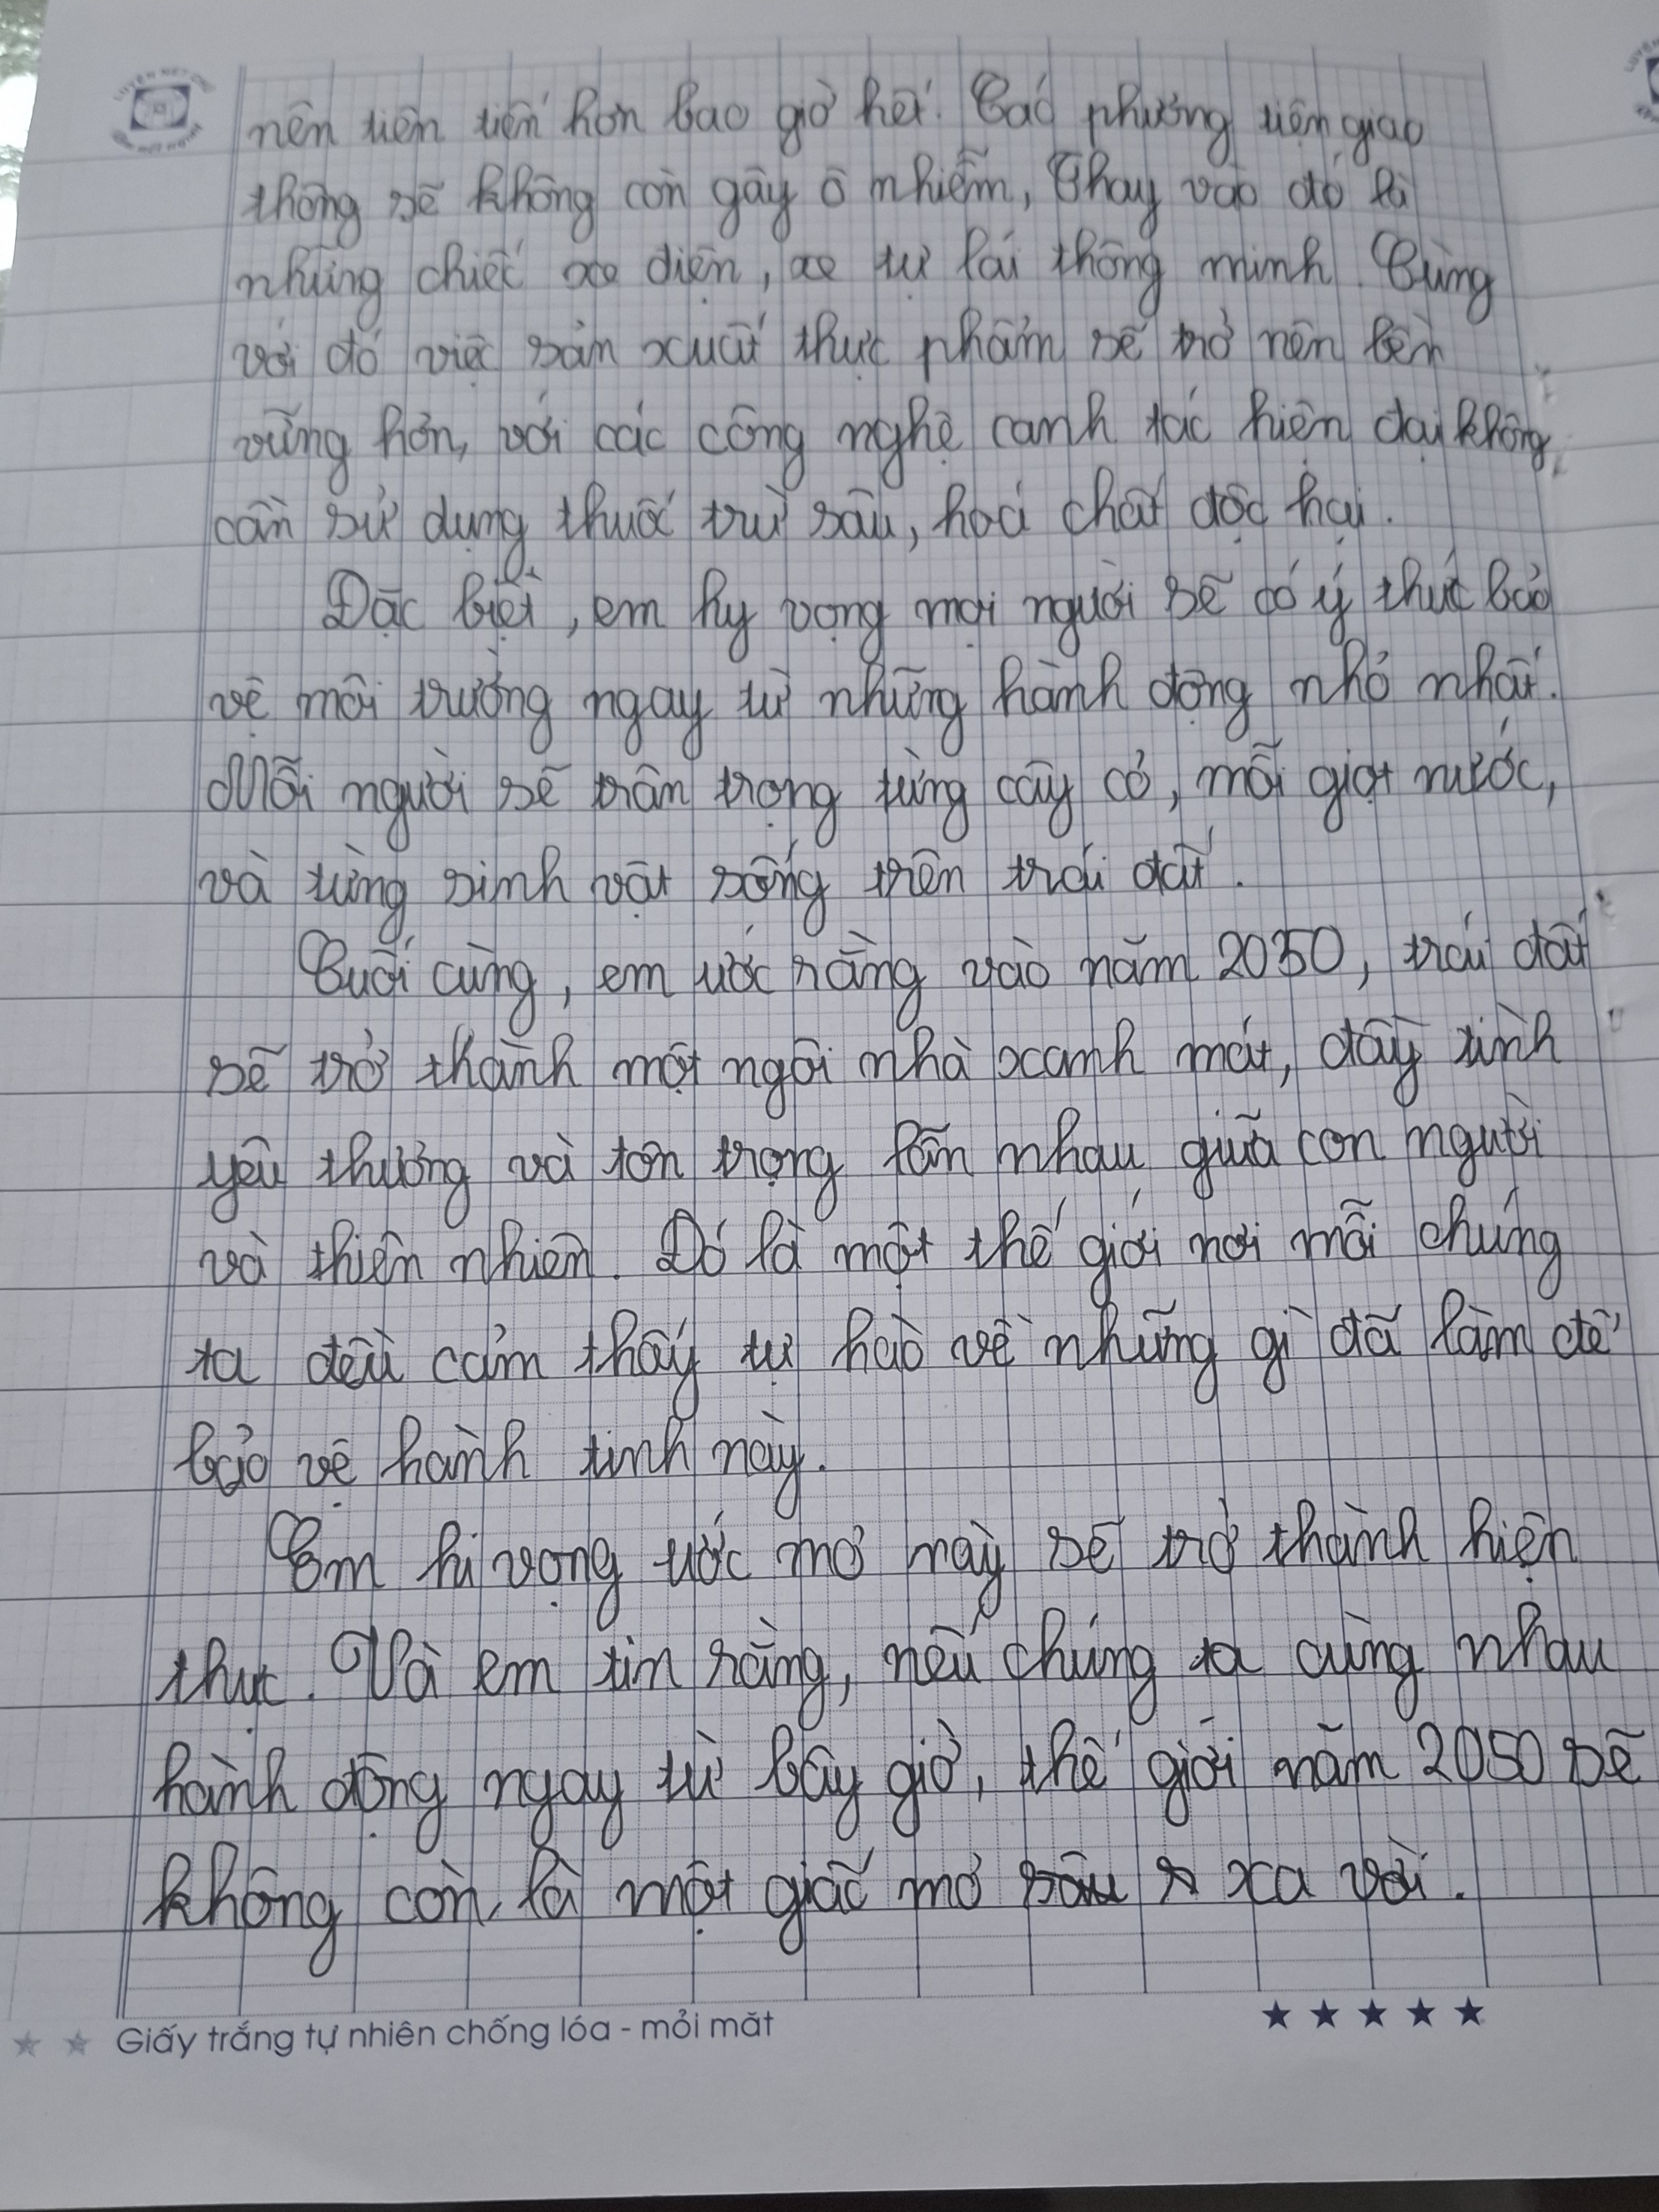 nên tiên tiến hơn bao giờ hết. Các phương tiện giao
thông sẽ không còn gây ô nhiễm, Thay vào đó là
những chiếc xe điện, xe tự lái thông minh. Cùng
với đó việc sản xuất thực phẩm sẽ trở nên bền
vững hơn, với các công nghệ canh tác hiện đại không
cần sử dụng thuốc trừ sâu, hoá chất độc hại.
Đặc biệt, em hy vọng mọi người sẽ có ý thức bảo
vệ môi trường ngay từ những hành động nhỏ nhất.
Mỗi người sẽ trân trọng từng cây cỏ, mỗi giọt nước,
và từng sinh vật sống trên trái đất.
Cuối cùng, em ước rằng vào năm 2050, trái đất
sẽ trở thành một ngôi nhà xanh mát, đầy tình
yêu thương và tôn trọng lẫn nhau giữa con người
và thiên nhiên. Đó là một thế giới nơi mỗi chúng
ta đều cảm thấy tự hào về những gì đã làm để
bảo vệ hành tinh này.
Em hi vọng ước mơ này sẽ trở thành hiện
thực. Và em tin rằng, nếu chúng ta cùng nhau
hành động ngay từ bây giờ, thế giới năm 2050 sẽ
không còn là một giấc mơ xa vời.
Giấy trắng tự nhiên chống lóa - mỏi mắt